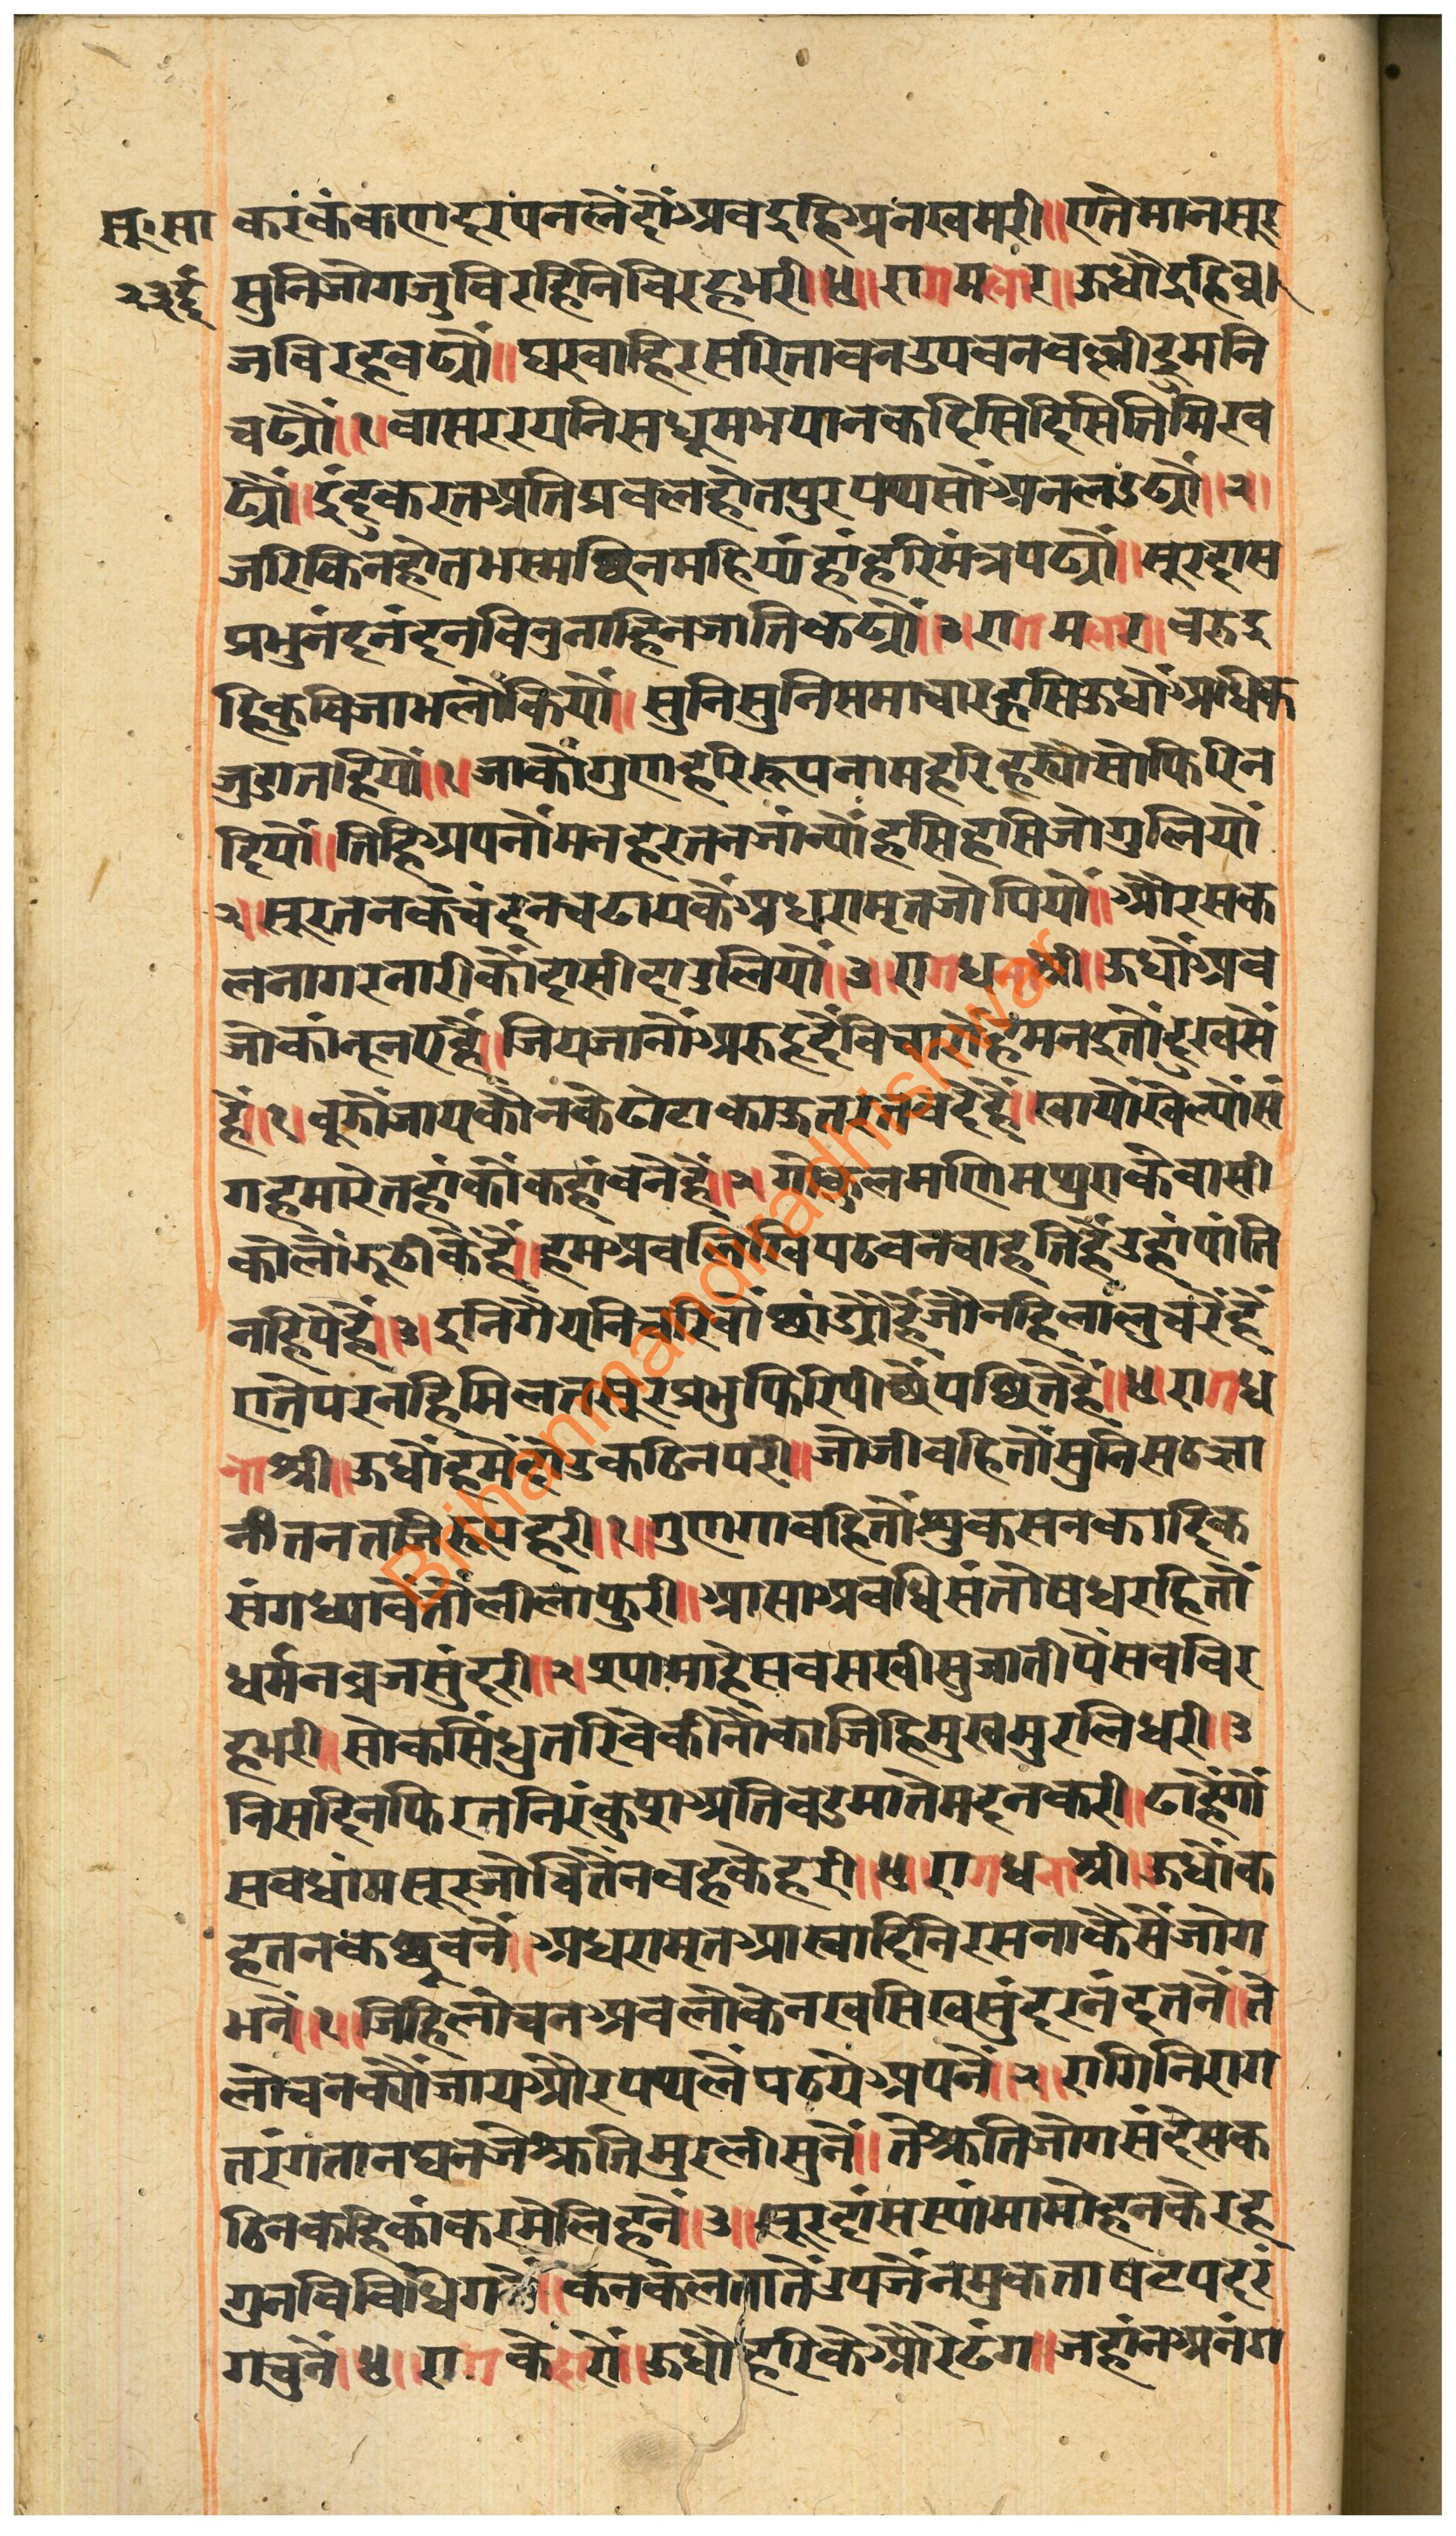 सू॰सा
२३ई
करकंकणदरपनलैंदौंअवदुहिअनखमरी॥एतेमानसूर
सुनिजोगजुविरहिनिविरहभरी॥४॥रागमलार॥ऊधौदुहिव्र
जविरहवढ्यौ॥घरवाहिरसरितावनउपवनवल्लीद्रुमनि
चढ्यौ॥१॥वासररयनिसधूमभयानकदिसिदिसितिमिरव
ढ्यौ॥दुंदकरतअतिप्रवलहोतपुरपय्यसौंअनलउढ्यौ॥२॥
जरिकिनहोतभस्मछिनमहियांहांहरिमंत्रपढ्यौ॥सूरदास
प्रभुनंदनंदनविनुनाहिनजातिकढ्यौ॥३॥रागमलार॥वरुदु
हिकुविजाभलौकियौ॥सुनिसुनिसमाचारहसिऊधौअधिक
जुडातहियौ॥१॥जाकौगुणहरिरूपनामहरिहर्‍यौसोफिरिन
दियौ॥तिहिअपनौंमनहरतनजांन्यौंहसिहसिजोगुलियौ
२॥सूरतनकचंदनचढायकैंअधरामृतजोपियौ॥औरसक
लनागरनारीकौंदासीदाउलियौ॥३॥रागधनाश्री॥ऊधौअव
जोकांन्हनएहैं॥जियजानौंअरुहृदैविचारौहमनदुतौदुखसें
हैं॥१॥वुझौंजायकौनकेढोटाकाऊतरतवदेहैं॥खायौखेल्यौसं
गहमारेतहांकौंकहांवनेहैं॥२॥गोकुलमणिमथुराकेवासी
कोलौंझूठीकैहैं॥हमअवलिखिपठवनचाहतिहैंउहांपांति
नहिपैहैं॥३॥दुनिगैयनिचरिवौंछांड्यौहैंजौनहिलालुचरैंहैं
एतेपरनहिमिलतसूरप्रभुफिरिपीछैंपछितैहैं॥४॥रागध
नाश्री॥ऊधौहमैंदोउकठिनपरी॥जोजीवहितौंसुनिसठज्ञा
नीतनतजिरूपहरी॥१॥गुणगावहितौंशुकसनकादिक
संगध्यावैंतौलीलाफुरी॥आसाअवधिसंतोषधरहितौं
धर्मनव्रजसुंदरी॥२॥स्यामाहेसवसखीसुजातीपैंसवविर
हभरी॥सोकसिंधुतरिवेकीनौकाजिहिमुखमुरलिधरी॥३
निसदिनफिरतनिरंकुशअतिवडमातेमदनकरी॥ढाहैंगौं
सवधांमसूरजोचितैनवहकेहरी॥४॥रागधनाश्री॥ऊधौंक
हतनकछूवनें॥अधरामृतआस्वादिनिरसनाकैसैंजोग
भनें॥१॥जिहिलोचनअवलोकेनखसिखसुंदरनंदतनें॥ते
लोचनक्यौंजायऔरपथ्यलेंपठयेअपनें॥२॥रागिनिराग
तरंगतानघनजेश्रुतिमुरलीसुनें॥तेश्रुतिजोगसंदेसक
ठिनकहिकांकरमेलिहनें॥३॥सूरदासस्यांमामोहनकेरह
गुनविविधिगनें॥कनकलतातेंउपजैंनमुकताषटपदरं
गचुनें॥४॥रागकेदारौं॥ऊधौहरिकेऔरेढंग॥जहांनअनंग